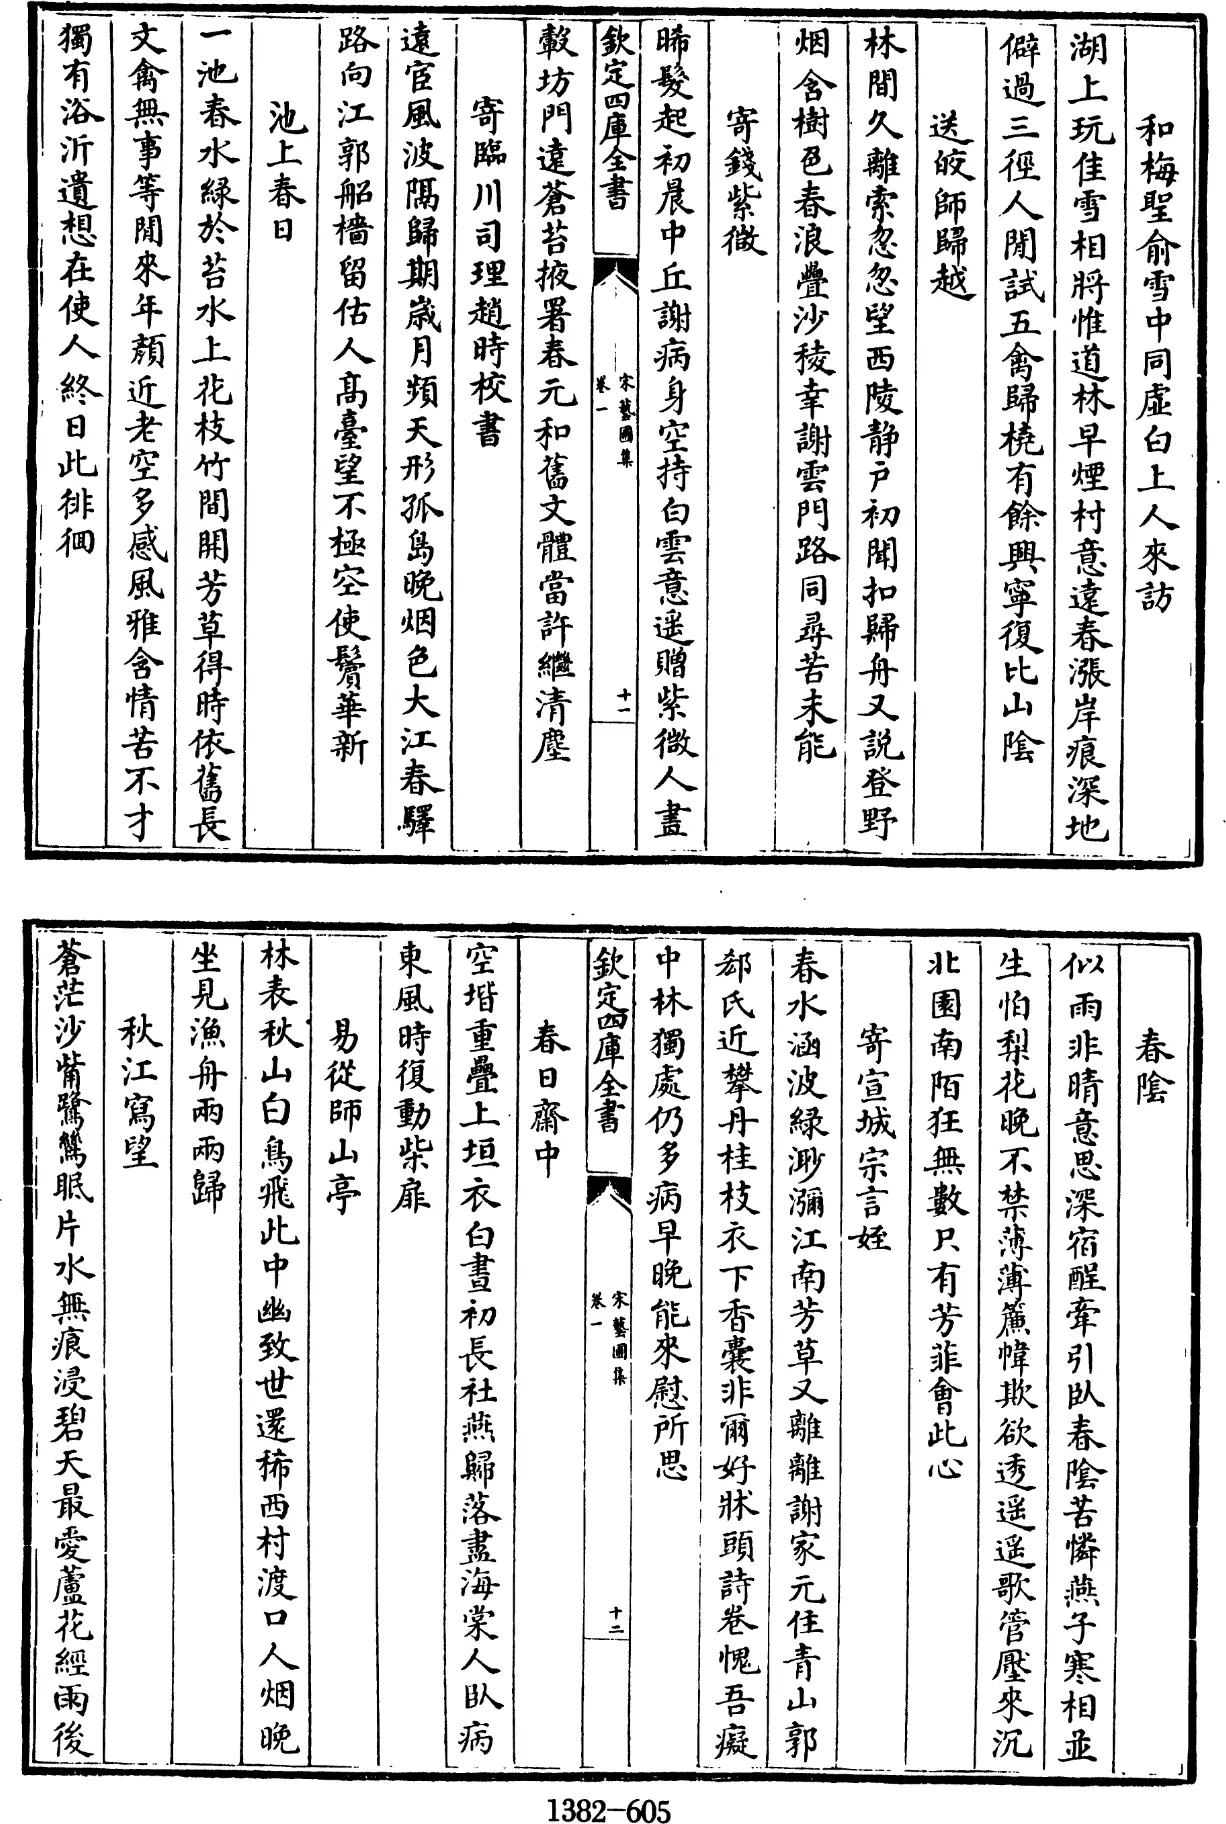 和梅聖俞雪中同虛白上人來訪
湖上玩佳雪相將惟道林早煙村意遠春漲岸痕深地
僻過三徑人閒試五禽歸橈有餘興寧復比山陰
送皎師歸越
林間久離索忽忽望西陵静户初聞扣歸舟又説登野
烟含樹色春浪疊沙稜幸謝雲門路同尋苦未能
寄錢紫微
晞髮起初晨中丘謝病身空持白雲意遥贈紫微人畫
欽定四庫全書
宋藝圃集
卷一
十一
轂坊門遠蒼苔掖署春元和舊文體當許繼清塵
寄臨川司理趙時校書
遠宦風波隔歸期歲月頻天形孤島晚烟色大江春驛
路向江郭船檣留估人髙臺望不極空使鬢華新
池上春日
一池春水緑於苔水上花枝竹間開芳草得時依舊長
文禽無事等閒來年顏近老空多感風雅含情苦不才
獨有浴沂遺想在使人終日此徘徊
春陰
似雨非晴意思深宿酲牽引臥春陰苦憐燕子寒相並
生怕梨花晚不禁薄薄簾幃欺欲透遥遥歌管壓來沉
北園南陌狂無數只有芳菲會此心
寄宣城宗言姪
春水涵波緑渺瀰江南芳草又離離謝家元住青山郭
郄氏近攀丹桂枝衣下香囊非爾好牀頭詩卷愧吾癡
中林獨處仍多病早晚能來慰所思
欽定四庫全書
宋藝圃集
卷一
十二
春日齋中
空堦重疊上垣衣白晝初長社燕歸落盡海棠人臥病
東風時復動柴扉
易從師山亭
林表秋山白鳥飛此中幽致世還稀西村渡口人烟晚
坐見漁舟兩兩歸
秋江寫望
蒼茫沙觜鷺鷥眠片水無痕浸碧天最愛蘆花經雨後
1382-605